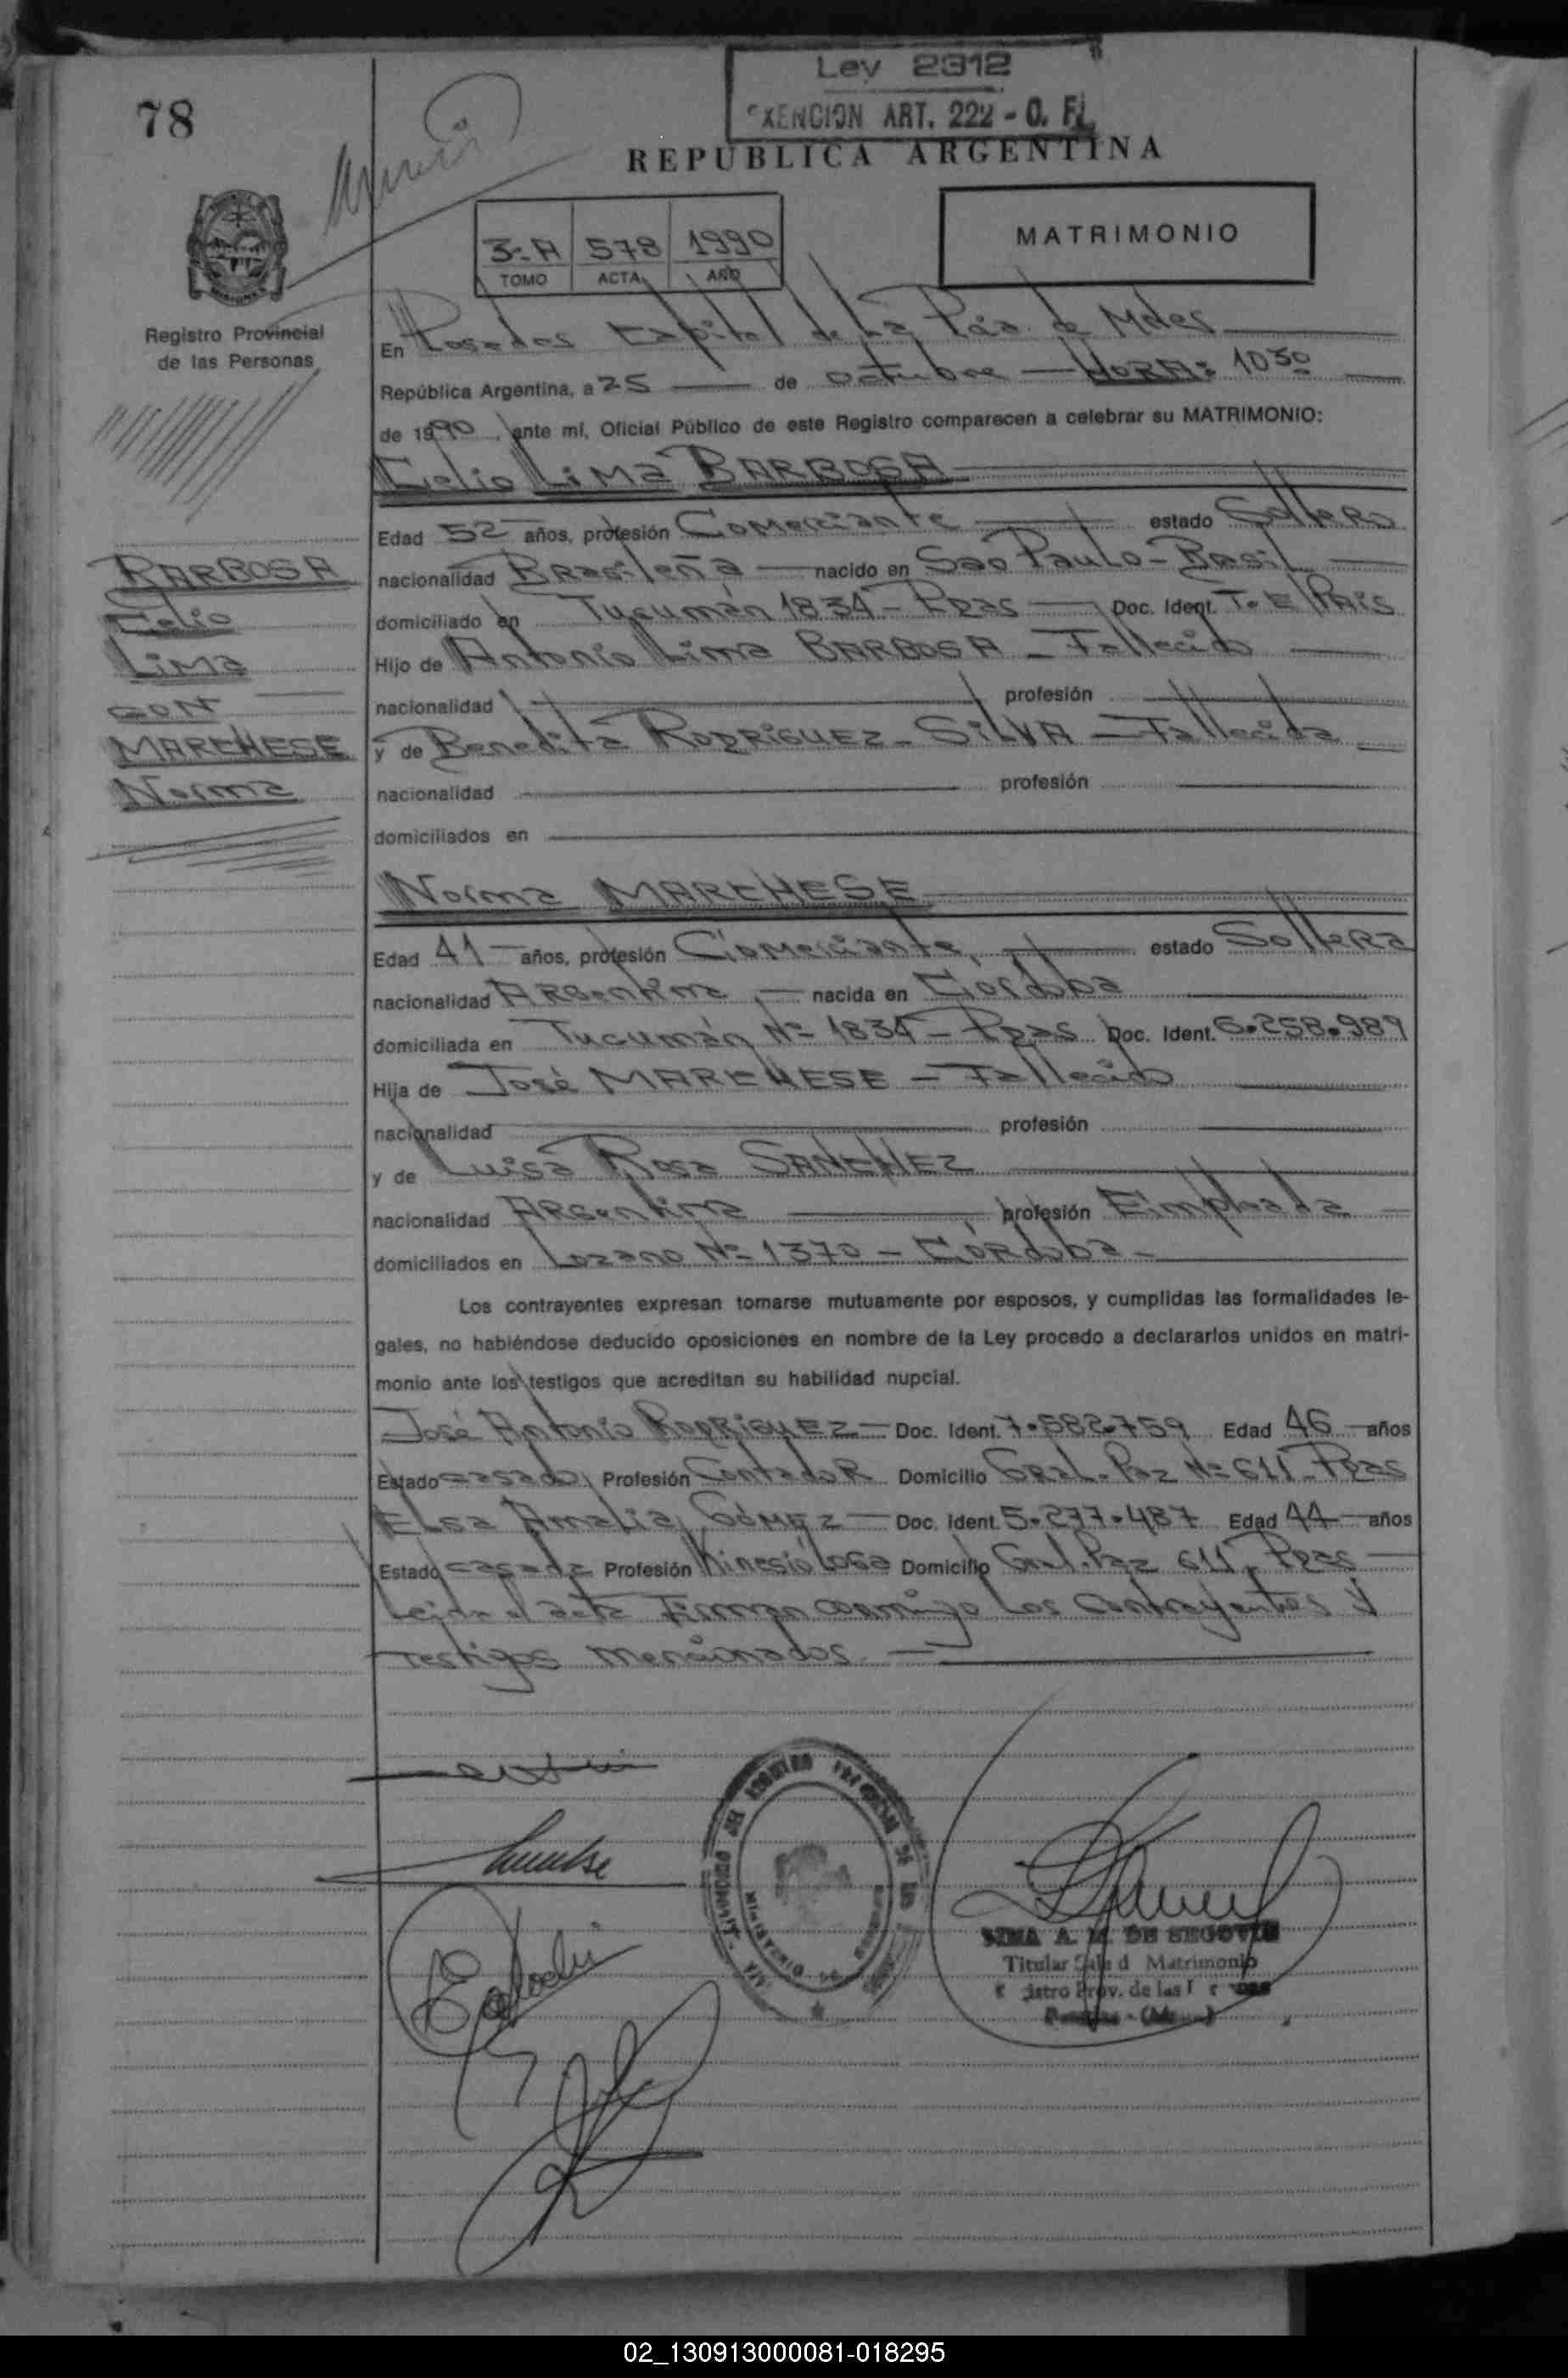 Ley 2312
EXENCION ART. 222 - O. F.
78
REPUBLICA ARGENTINA
3-A 578 1990
TOMO ACTA AÑO
MATRIMONIO
Registro Provincial
de las Personas
En Posadas Capital de La Pcia. de Mnes
República Argentina, a 25 de octubre HORA: 10 30
de 1990, ante mí, Oficial Público de este Registro comparecen a celebrar su MATRIMONIO:
Celio Lima BARBOSA
Edad 52 años, profesión Comerciante estado Soltero
nacionalidad Brasileña nacido en Sao Paulo - Brasil
domiciliado en Tucumán 1834 - Ppas Doc. Ident. T. E/PAIS
Hijo de Antonio Lima BARBOSA - Fallecido
nacionalidad profesión
y de Benedita RODRIGUEZ - SILVA - Fallecida
nacionalidad profesión
domiciliados en
BARBOSA
Celio
Lima
CON
MARCHESE
Norma
Norma MARCHESE
Edad 41 años, profesión Comerciante, estado Soltera
nacionalidad Argentina, nacida en Córdoba
domiciliada en Tucumán Nº 1834 - Ppas Doc. Ident. 6.258.989
Hija de José MARCHESE - Fallecido
nacionalidad profesión
y de Luisa Rosa SANCHEZ
nacionalidad Argentina profesión Empleada
domiciliados en Lozano Nº 1370 - Córdoba -
Los contrayentes expresan tomarse mutuamente por esposos, y cumplidas las formalidades le-
gales, no habiéndose deducido oposiciones en nombre de la Ley procedo a declararlos unidos en matri-
monio ante los testigos que acreditan su habilidad nupcial.
José Antonio RODRIGUEZ - Doc. Ident. 7.582.759 Edad 46 años
Estado casado Profesión Contador Domicilio Gral. Paz Nº 611 - Ppas
Elsa Amalia GÓMEZ - Doc. Ident. 5.277.487 Edad 44 años
Estado casada Profesión Kinesióloga Domicilio Gral. Paz 611, Ppas
Leída el acta Firman conmigo Los contrayentes y
Testigos mencionados. -
A. M. DE SEGOVIA
Titular Sala d Matrimonio
Prov. de las
02_130913000081-018295